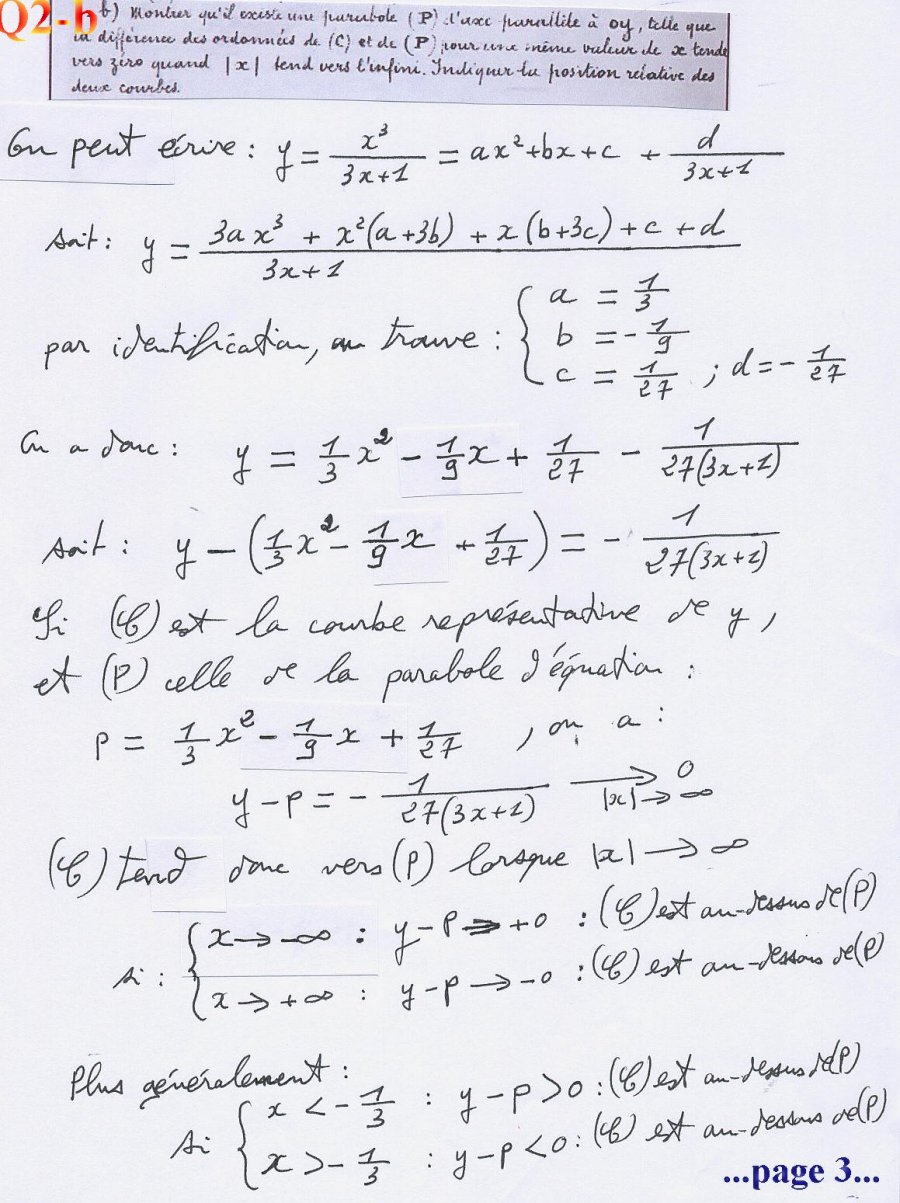 Q2-b
b) Montrer qu'il existe une parabole (P) d'axe parallèle à oy, telle que
la différence des ordonnées de (C) et de (P) pour une même valeur de x tende
vers zéro quand |x| tend vers l'infini. Indiquer la position relative des
deux courbes.
On peut écrire : y = x³/(3x+1) = ax²+bx+c + d/(3x+1)
soit : y = (3ax³ + x²(a+3b) + x(b+3c) + c + d)/(3x+1)
par identification, on trouve : { a = 1/3
b = -1/9
c = 1/27 ; d = -1/27
On a donc : y = 1/3 x² - 1/9 x + 1/27 - 1/(27(3x+1))
soit : y - (1/3 x² - 1/9 x + 1/27) = - 1/(27(3x+1))
Si (C) est la courbe représentative de y,
et (P) celle de la parabole d'équation :
p = 1/3 x² - 1/9 x + 1/27 , on a :
y - p = - 1/(27(3x+1)) → 0 |x| → ∞
(C) tend donc vers (P) lorsque |x| → ∞
si : { x → -∞ : y - p → +0 : (C) est au-dessus de (P)
x → +∞ : y - p → -0 : (C) est au-dessous de (P)
Plus généralement :
si { x < -1/3 : y - p > 0 : (C) est au-dessus de (P)
x > -1/3 : y - p < 0 : (C) est au-dessous de (P)
...page 3...